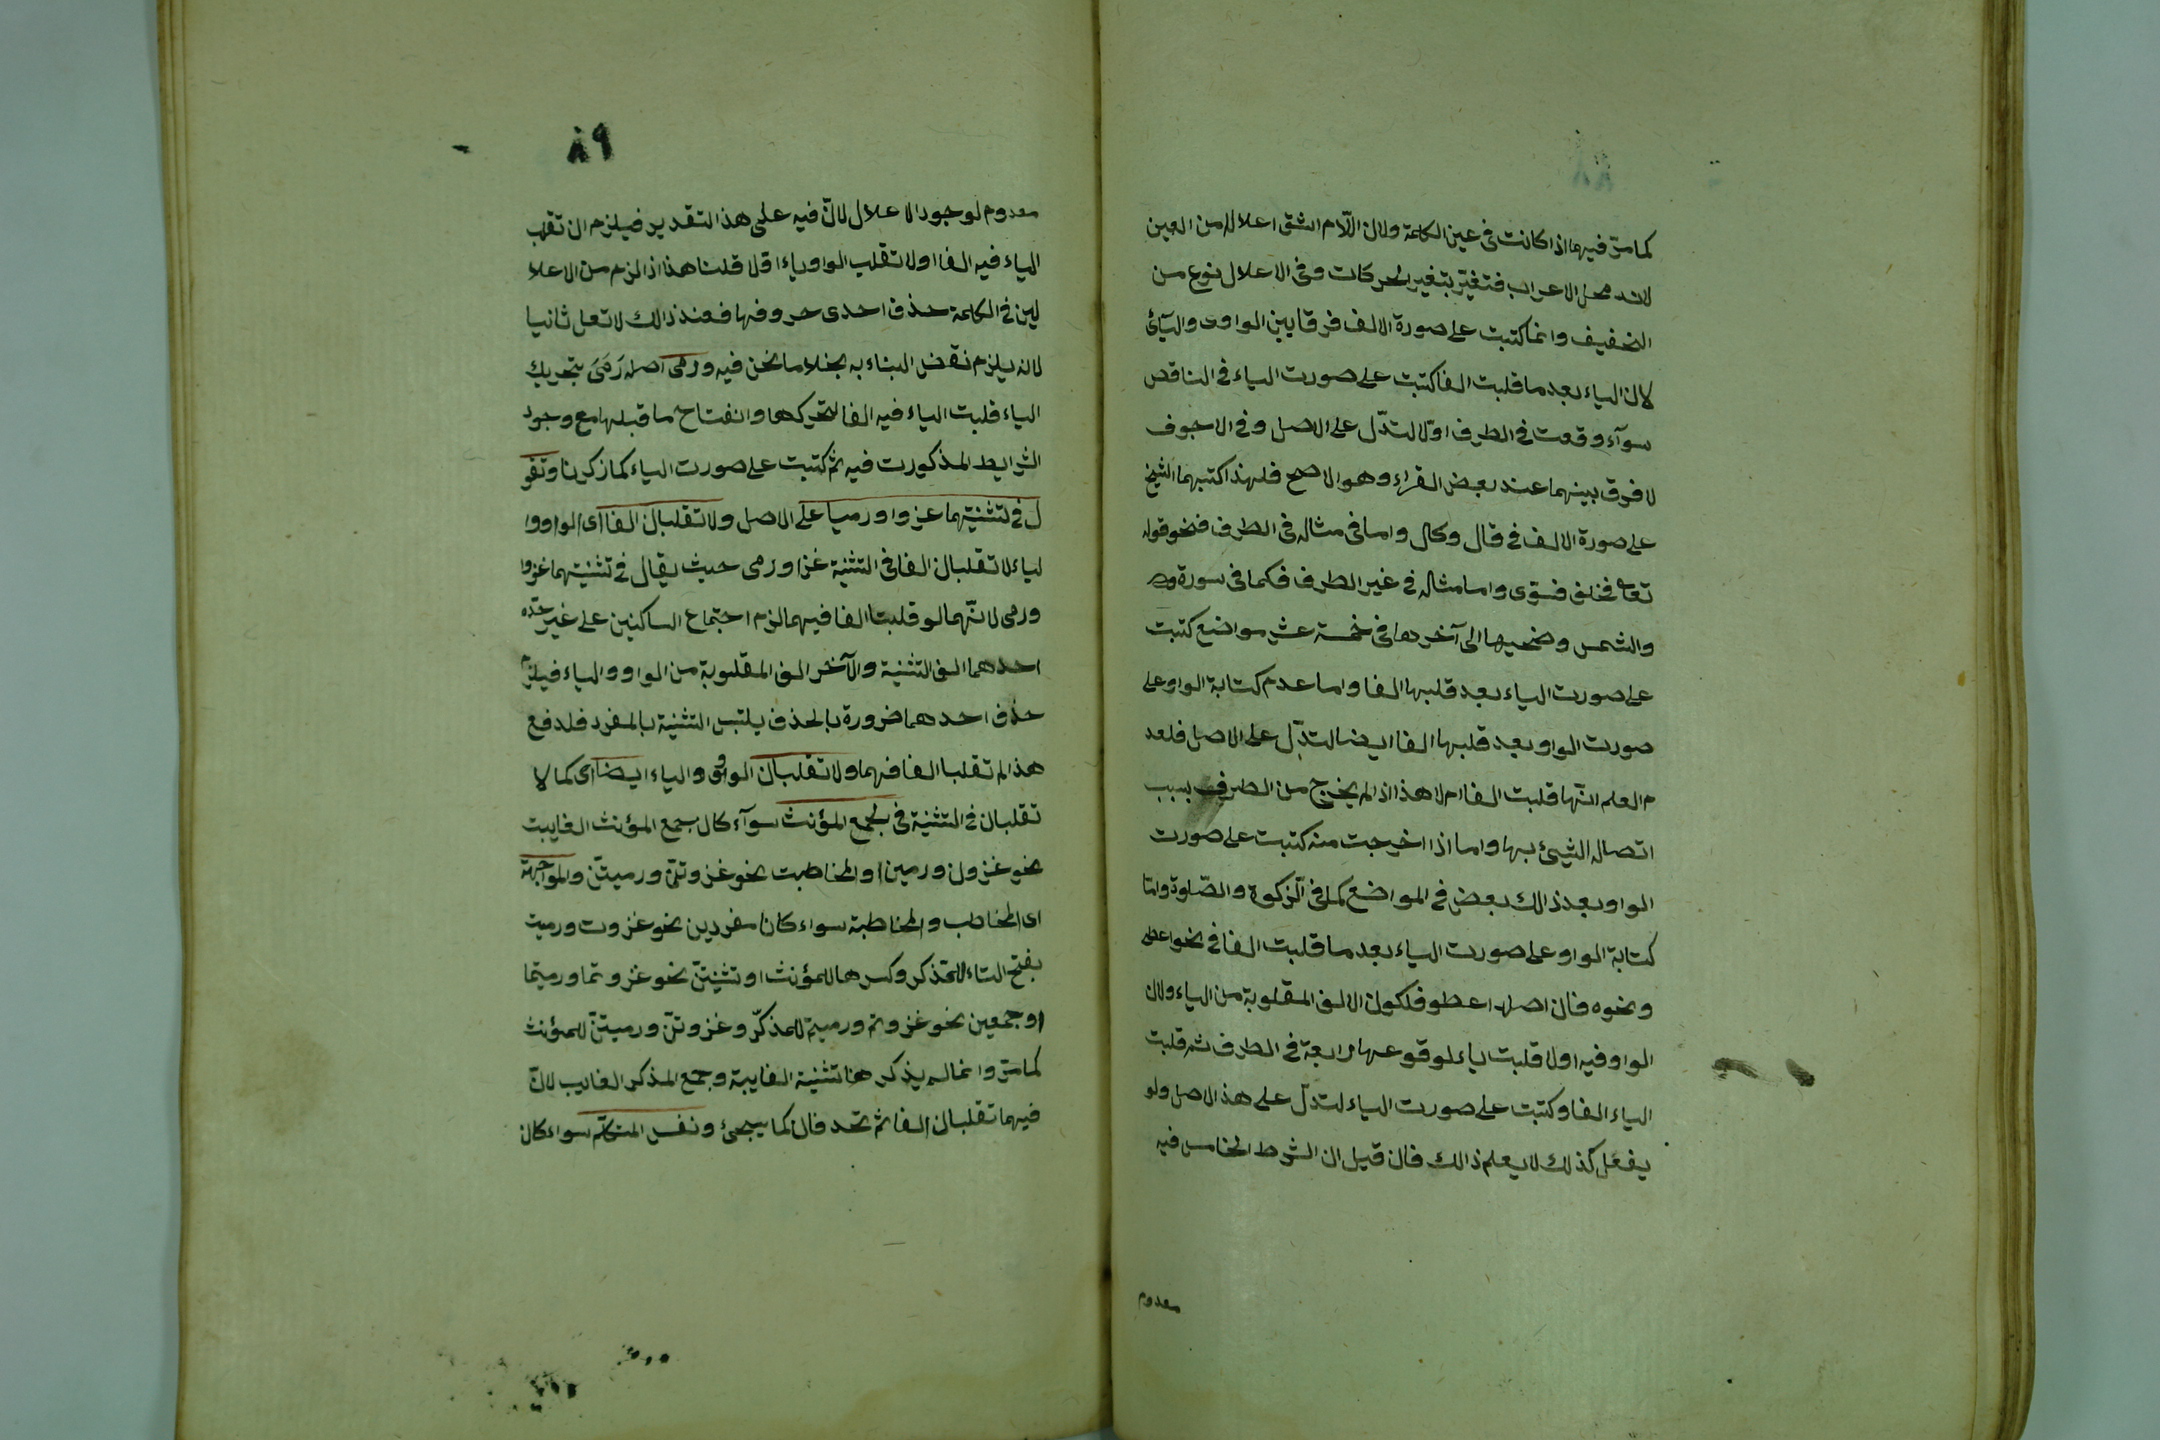 كما مرّ فيهما اذا كانت في عين الكلمة ولان اللّام اشقّ اعلالا من العين
لانه محل الاعراب فتغيّر بتغير الحركات وفي الاعلال نوع من
التخفيف وانما كتبت على صورة الالف فرقا بين الواوى واليآئ
لان الياء بعد ما قلبت الفا كتبت على صورت الياء في الناقص
سوآء وقعت في الطرف اوّلا لتدّل على الاصل وفى الاجوف
لا فرق بينهما عند بعض القراء وهو الاصح فلهذا كتبهما الشيخ
على صورة الالف في قال وكال واما في مثاله في الطرف فنحو قوله
تعا فخلق فسّوى واما مثاله في غير الطرف فكما فى سورة
والشمس وضحيها الى آخرها في خمسة عشر مواضع كتبت
على صورت الياء بعد قلبها الفا واما عدم كتابة الواو على
صورت الواو بعد قلبها الفا ايضا لتدّل على الاصل فلعد
م العلم انّها قلبت الفا ام لا هذا اذا لم يخرج من الطرف بسبب
اتصاله الشيئ بها واما اذا اخرجت منه كتبت على صورت
الواو بعد ذالك بعض في المواضع كما في الّزكوة والصّلوة وامّا
كتابة الواو على صورت الياء بعد ما قلبت الفا في نحو اعطى
ونحوه فان اصله اعطو فلكون الالف المقلوبة من الياء ولان
الواو فيه اولا قلبت ياء لوقوعها رابعة في الطرف ثم قلبت
الياء الفا وكتبت على صورت الياء لتدّل على هذ الاصل ولو
يفعل كذلك لا يعلم ذالك فان قيل ان الشرط الخامس فيه
معدوم
٨٩
معدوم لوجود الاعلال لانّ فيه على هذ التقدير فيلزم ان تقلب
الياء فيه الفا اولا تقلب الواو ياء اوّلا قلنا هذا اذ الزم من الاعلا
لين في الكلمة حذف احدى حروفها فعند ذالك لا تعل ثانيا
لانه يلزم نقض البناء به بخلاف ما نحن فيه ورمى اصله رَمَىَ بتحريك
الياء قلبت الياء فيه الفا لتحركها وانفتاح ما قبلها مع وجود
الشرايط المذكورت فيه ثم كتبت على صورت الياء كما زكرنا وتقو
ل في تثنيتهما غزوا ورميا على الاصل ولا تقلبان الفا اى الواو وا
لياء لا تقلبان الفا في التثنية غزا ورمى حيث يقال في تثنيتهما غزوا
ورمى لانّهما لو قلبتا الفا فيهما لزم اجتماع الساكنين على غير حدّه
احدهما الف التثنية والآخر الف المقلوبة من الواو والياء فيلزم
حذف احدهما ضرورة بالحذف يلتبس التثنية بالمفرد فلدفع
هذا لم تقلبا الفا فيهما ولا تقلبان الواو والياء ايضا اى كما لا
تقلبان في التثنية في الجمع المؤنث سوآء كان جمع المؤنث الغايبت
نحو غزون ورمين او المخاطبت نحو غزوتنّ ورميتنّ والمواجهة
اى المخاطب والمخاطبة سواء كان مفردين نحو غزوت ورميت
بفتح التاء للتذكر وكسرها للمؤنث او تثنيتنّ نحو غزوتما ورميتما
او جمعين نحو غزوتم ورميتم للمذكّر وغزوتنّ ورميتنّ للمؤنث
كما مرّ وانما لم يذكر هنا تثنية الغايبة وجمع المذكر الغايب لانّ
فيهما تقلبان الفا ثم تحذفان كما سيجئ ونفس المتكلّم سواء كان